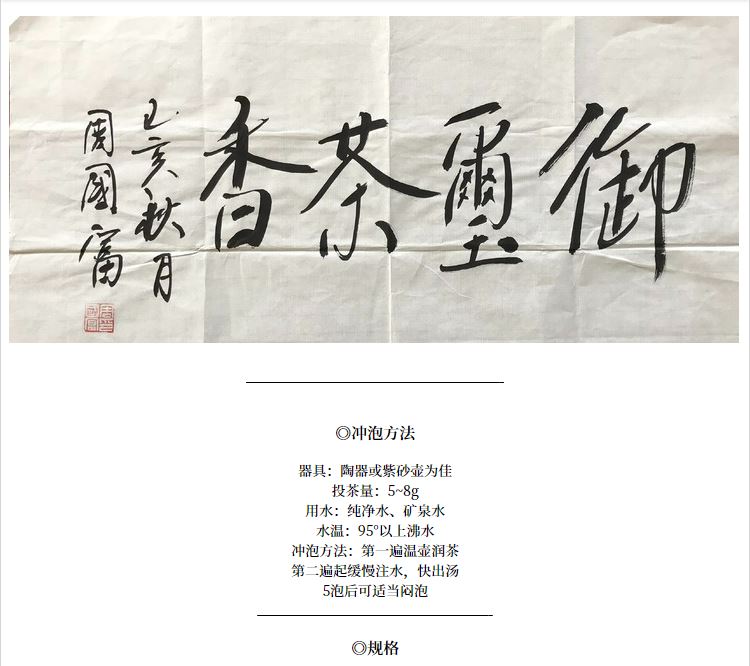 御璽茶香
乙亥秋月
周國富
◎冲泡方法
器具：陶器或紫砂壶为佳
投茶量：5~8g
用水：纯净水、矿泉水
水温：95°以上沸水
冲泡方法：第一遍温壶润茶
第二遍起缓慢注水，快出汤
5泡后可适当闷泡
◎规格